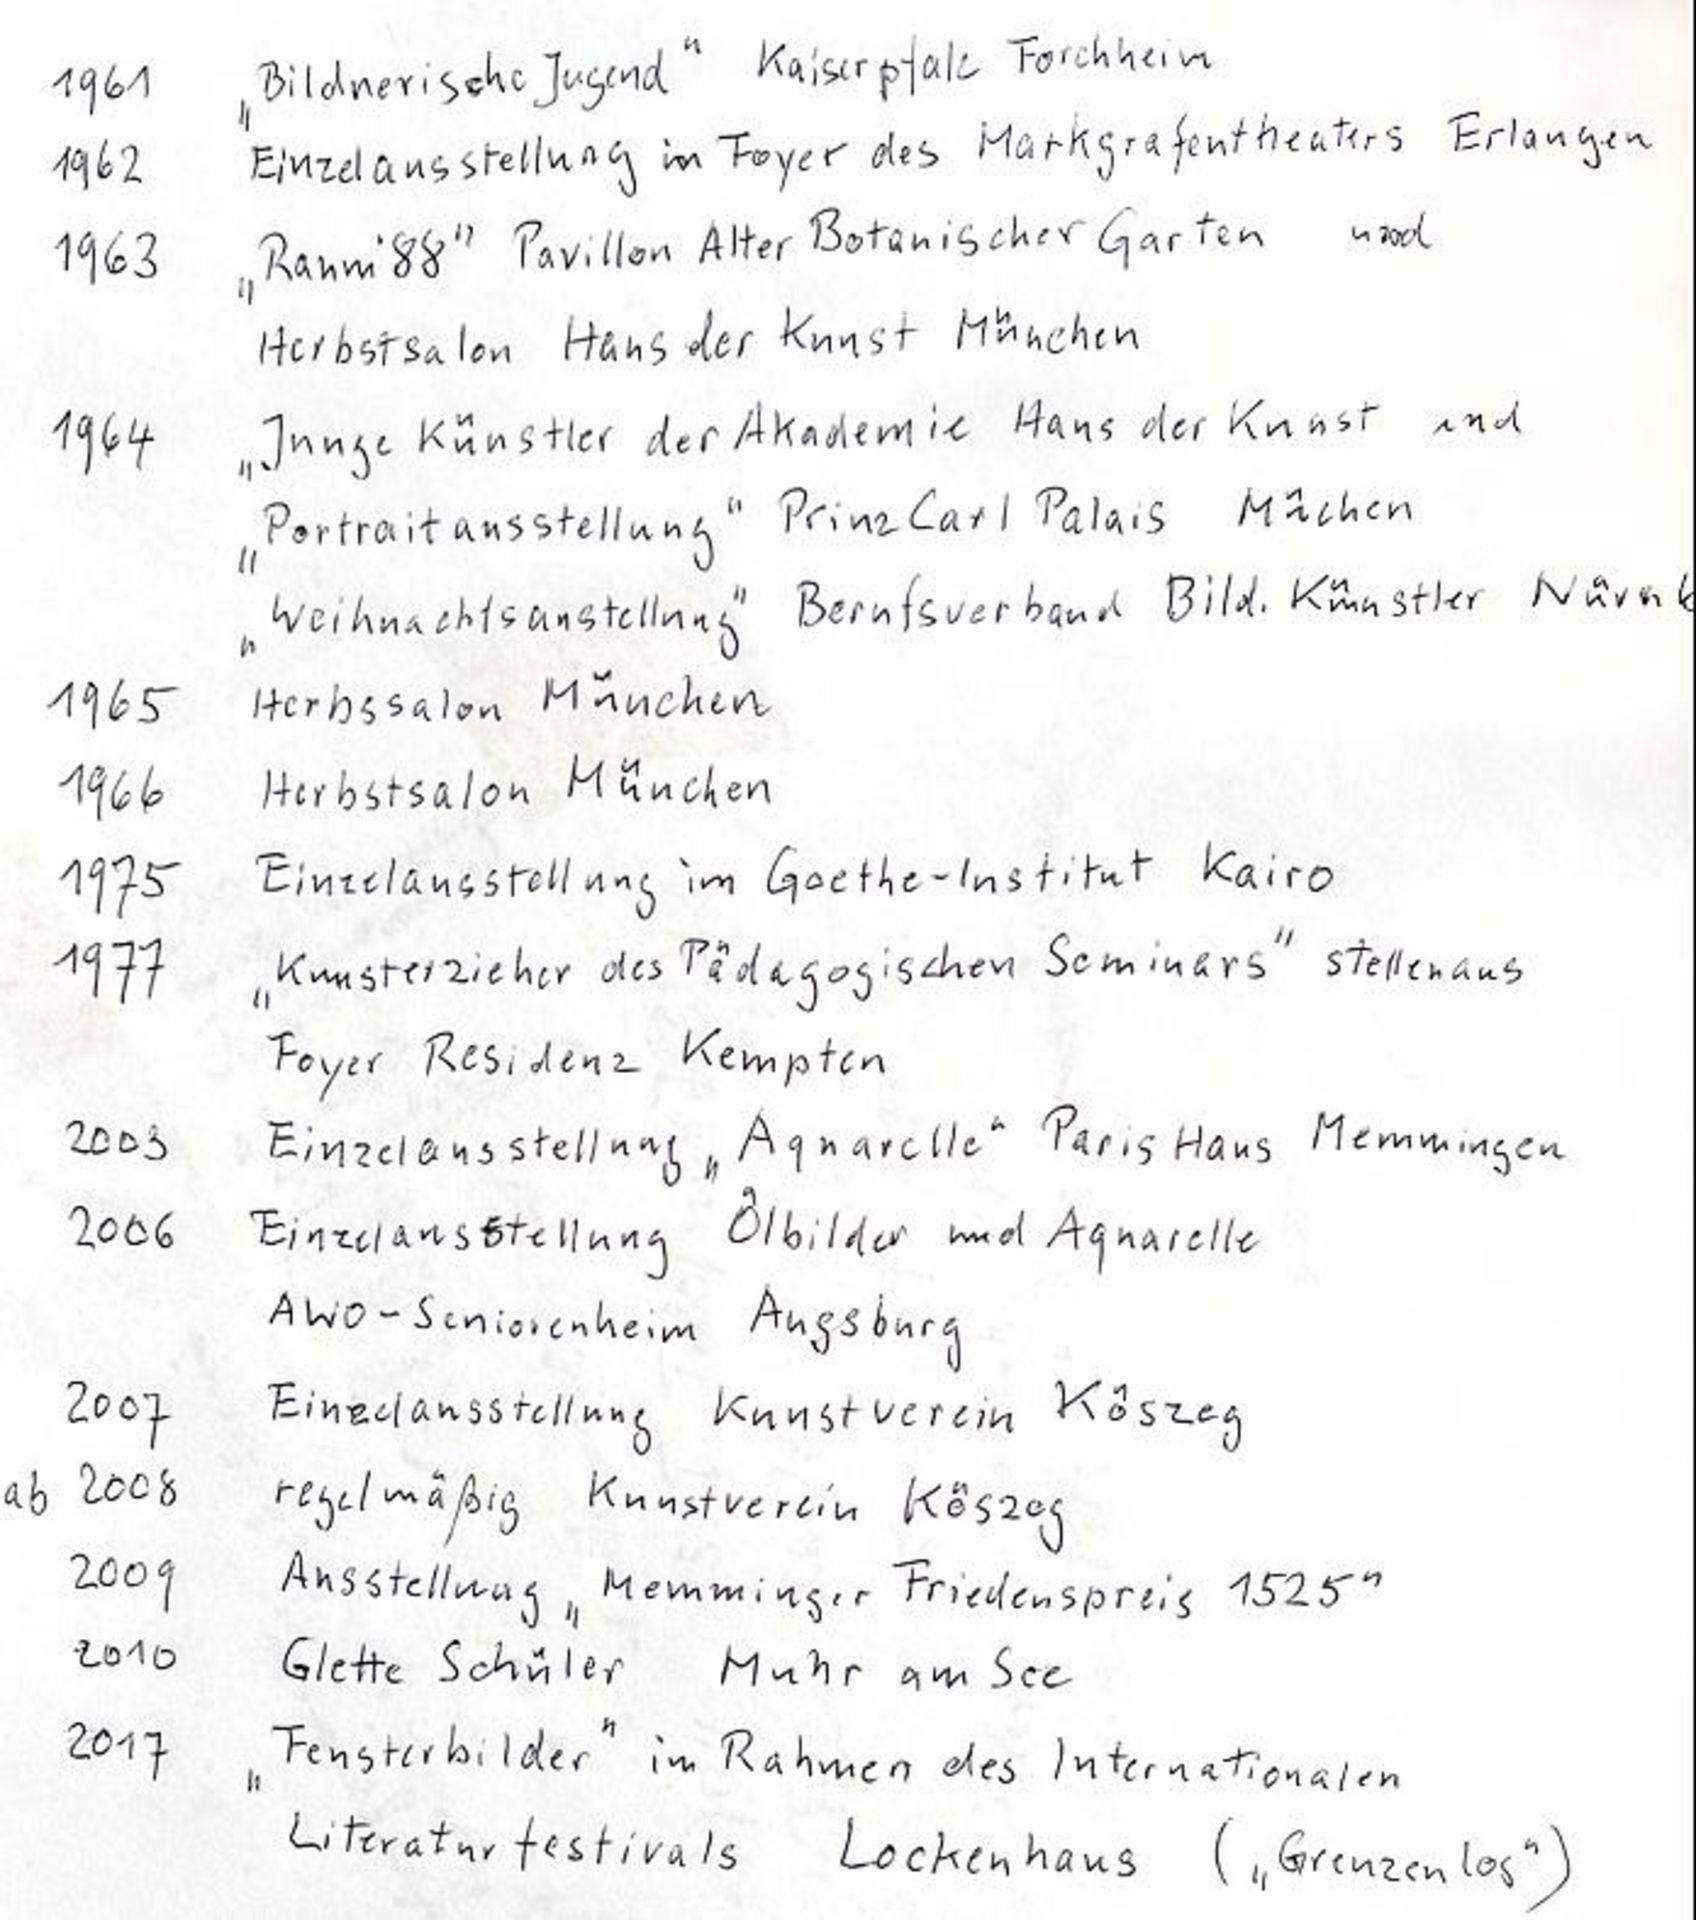 1961 „Bildnerische Jugend" Kaiserpfalz Forchheim
1962 Einzelausstellung im Foyer des Markgrafentheaters Erlangen
1963 „Raum '88" Pavillon Alter Botanischer Garten und
Herbstsalon Haus der Kunst München
1964 „Junge Künstler der Akademie Haus der Kunst und
„Portraitausstellung" Prinz Carl Palais Müchen
„Weihnachtsaustellung" Berufsverband Bild. Künstler Nürnb
1965 Herbssalon München
1966 Herbstsalon München
1975 Einzelausstellung im Goethe-Institut Kairo
1977 „Kunsterzieher des Pädagogischen Seminars" stellen aus
Foyer Residenz Kempten
2003 Einzelausstellung „Aquarelle" Paris Haus Memmingen
2006 Einzelausstellung Ölbilder und Aquarelle
AWO-Seniorenheim Augsburg
2007 Einzelausstellung Kunstverein Köszeg
ab 2008 regelmäßig Kunstverein Köszeg
2009 Ausstellung „Memminger Friedenspreis 1525"
2010 Glette Schüler Muhr am See
2017 „Fensterbilder" im Rahmen des Internationalen
Literaturfestivals Lockenhaus („Grenzenlos")